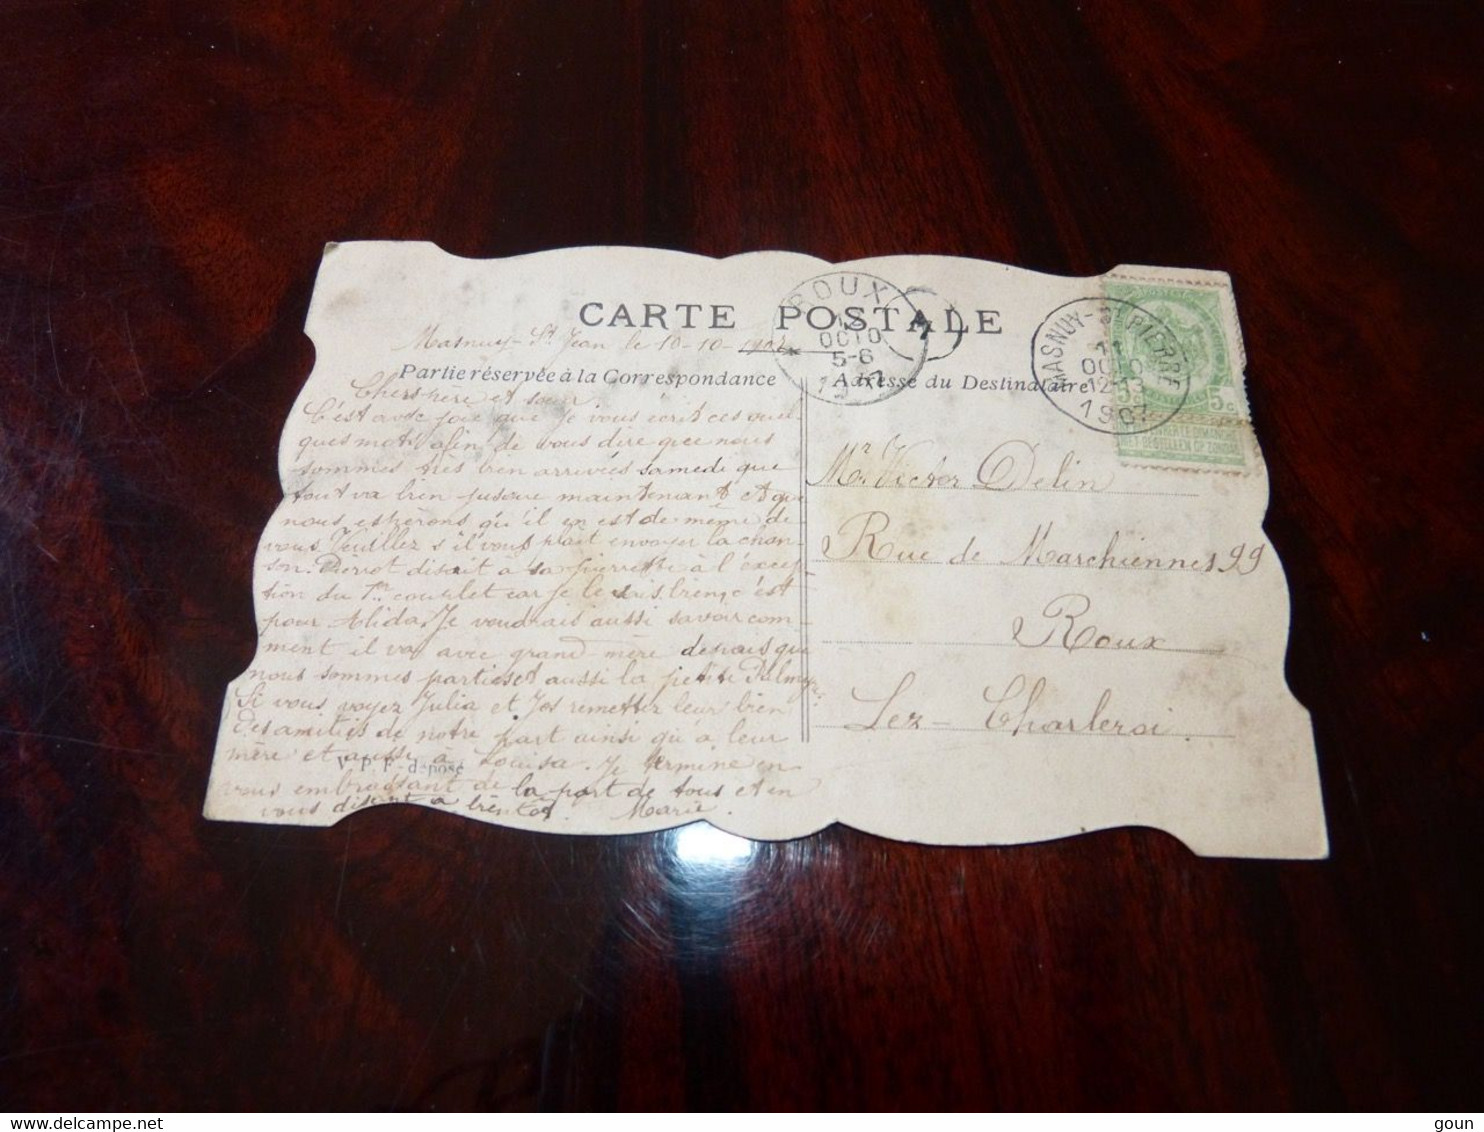 CARTE POSTALE
ROUX
OCT0
5-6
MASNUY-ST PIERRE
11
OCTO
12-13
1907
5c
Masnuy-St Jean le 10-10-1907
Partie réservée à la Correspondance
Adresse du Destinataire
Chers père et sœur
C'est avec joie que je vous écrit ces quel
ques mots afin de vous dire que nous
sommes très bien arrivées samedi que
tout va bien jusque maintenant et que
nous espérons qu'il en est de même de
vous. Veuillez s'il vous plait envoyer la chan-
son. Pierrot disait a sa Pierrette à l'excep
tion du 1er couplet car je le sais bien, c'est
pour Alida. Je voudrais aussi savoir com-
ment il va avec grand-mère depuis que
nous sommes parties et aussi la petite Palmyre
Si vous voyez Julia et Jos remettez leur bien
des amitiés de notre part ainsi qu'à leur
mère et aussi à Louisa. Je termine en
vous embrassant de la part de tous et en
vous disant a bientôt. Marie.
V. P. F. déposé
Mr. Victor Delin
Rue de Marchiennes 99
Roux
Lez-Charleroi.
goun